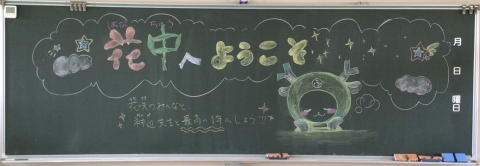 はな ちゅう
花中へようこそ
花咲のみんなと
渡辺先生と最高の1年にしよう!!!
月
日
曜日